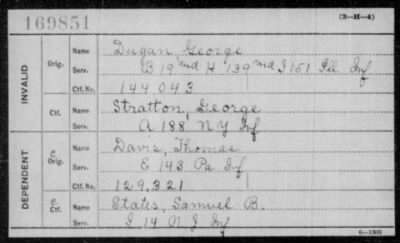 169851
(3-H-4)
INVALID
Orig. Name Dugan, George
Serv. B 19 H 139 I 151 Ill Inf
Ctf. No. 144 043
Ctf. Name Stratton, George
Serv. A 188 N Y Inf
DEPENDENT
C. Orig. Name Davis, Thomas
Serv. E 143 Pa Inf
Ctf. No. 129,321
C. Ctf. Name States, Samuel B.
Serv. I 14 N J Inf